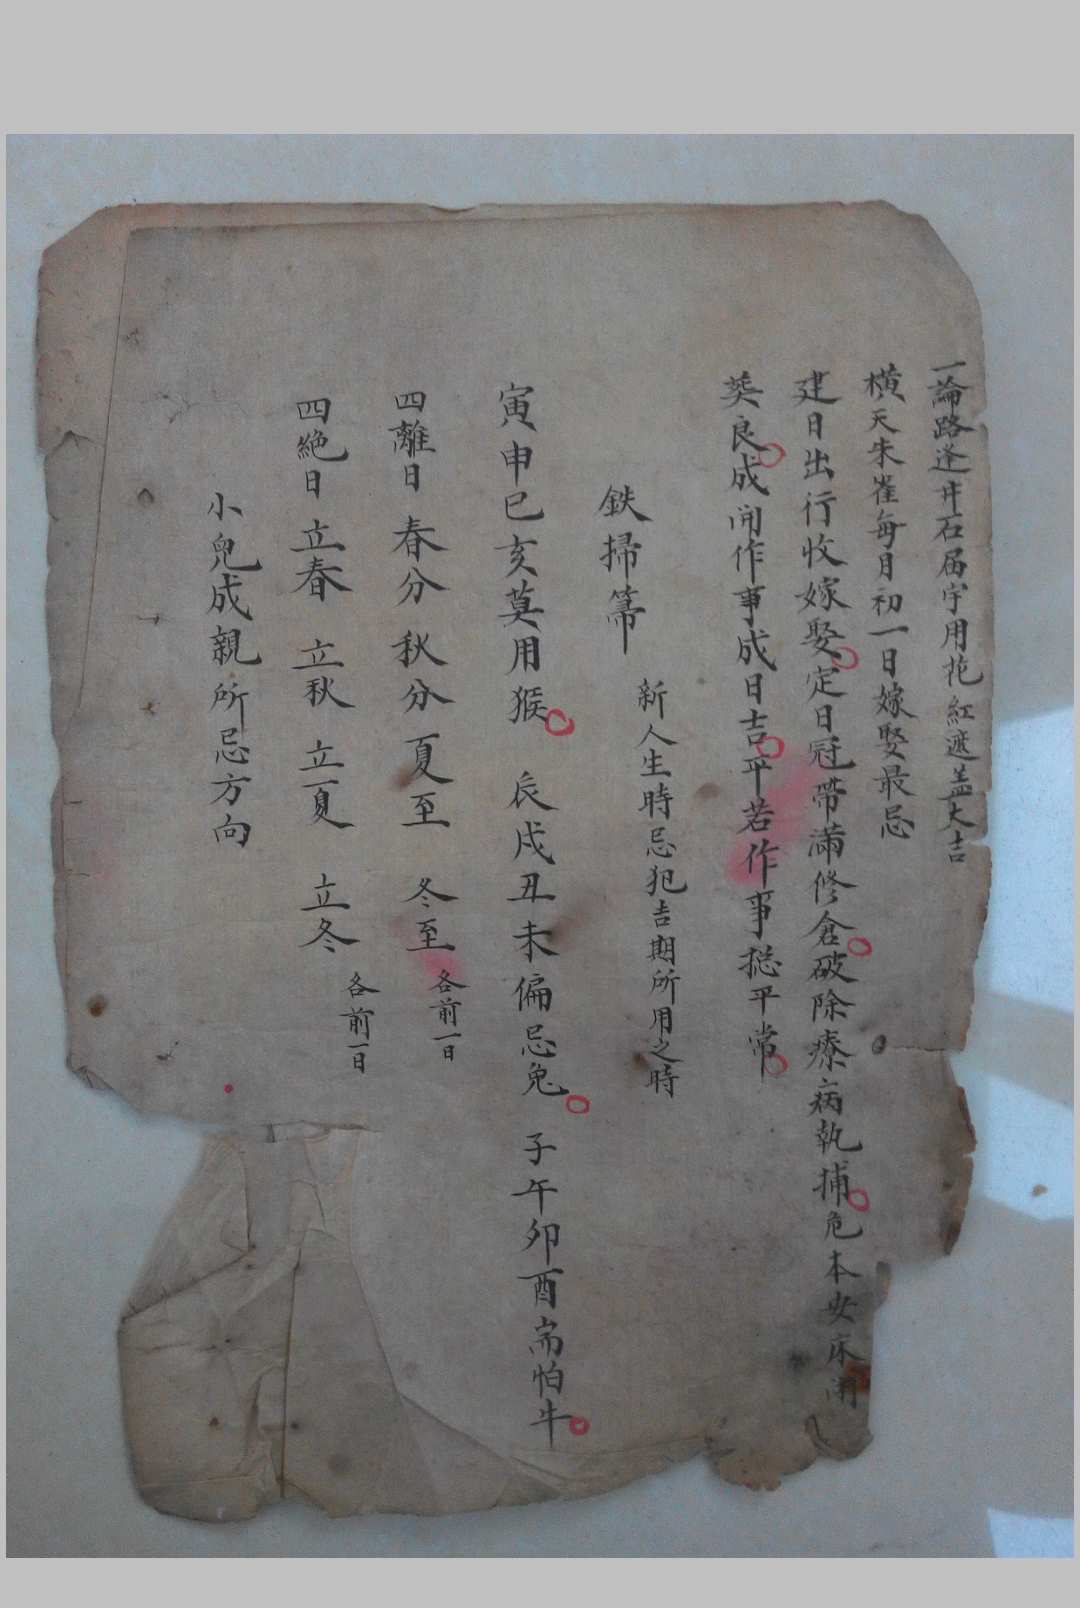 一論路逢井石届宇用花紅遮盖大吉
橫天朱雀每月初一日嫁娶最忌
建日出行收嫁娶定日冠帶滿修倉破除療病執捕危本安床閉
葵良成開作事成日吉平若作事摠平常
鉄掃箒 新人生時忌犯吉期所用之時
寅申巳亥莫用猴 辰戍丑未偏忌兔 子午卯酉耑怕牛
四離日 春分 秋分 夏至 冬至 各前一日
四絶日 立春 立秋 立夏 立冬 各前一日
小兒成親所忌方向